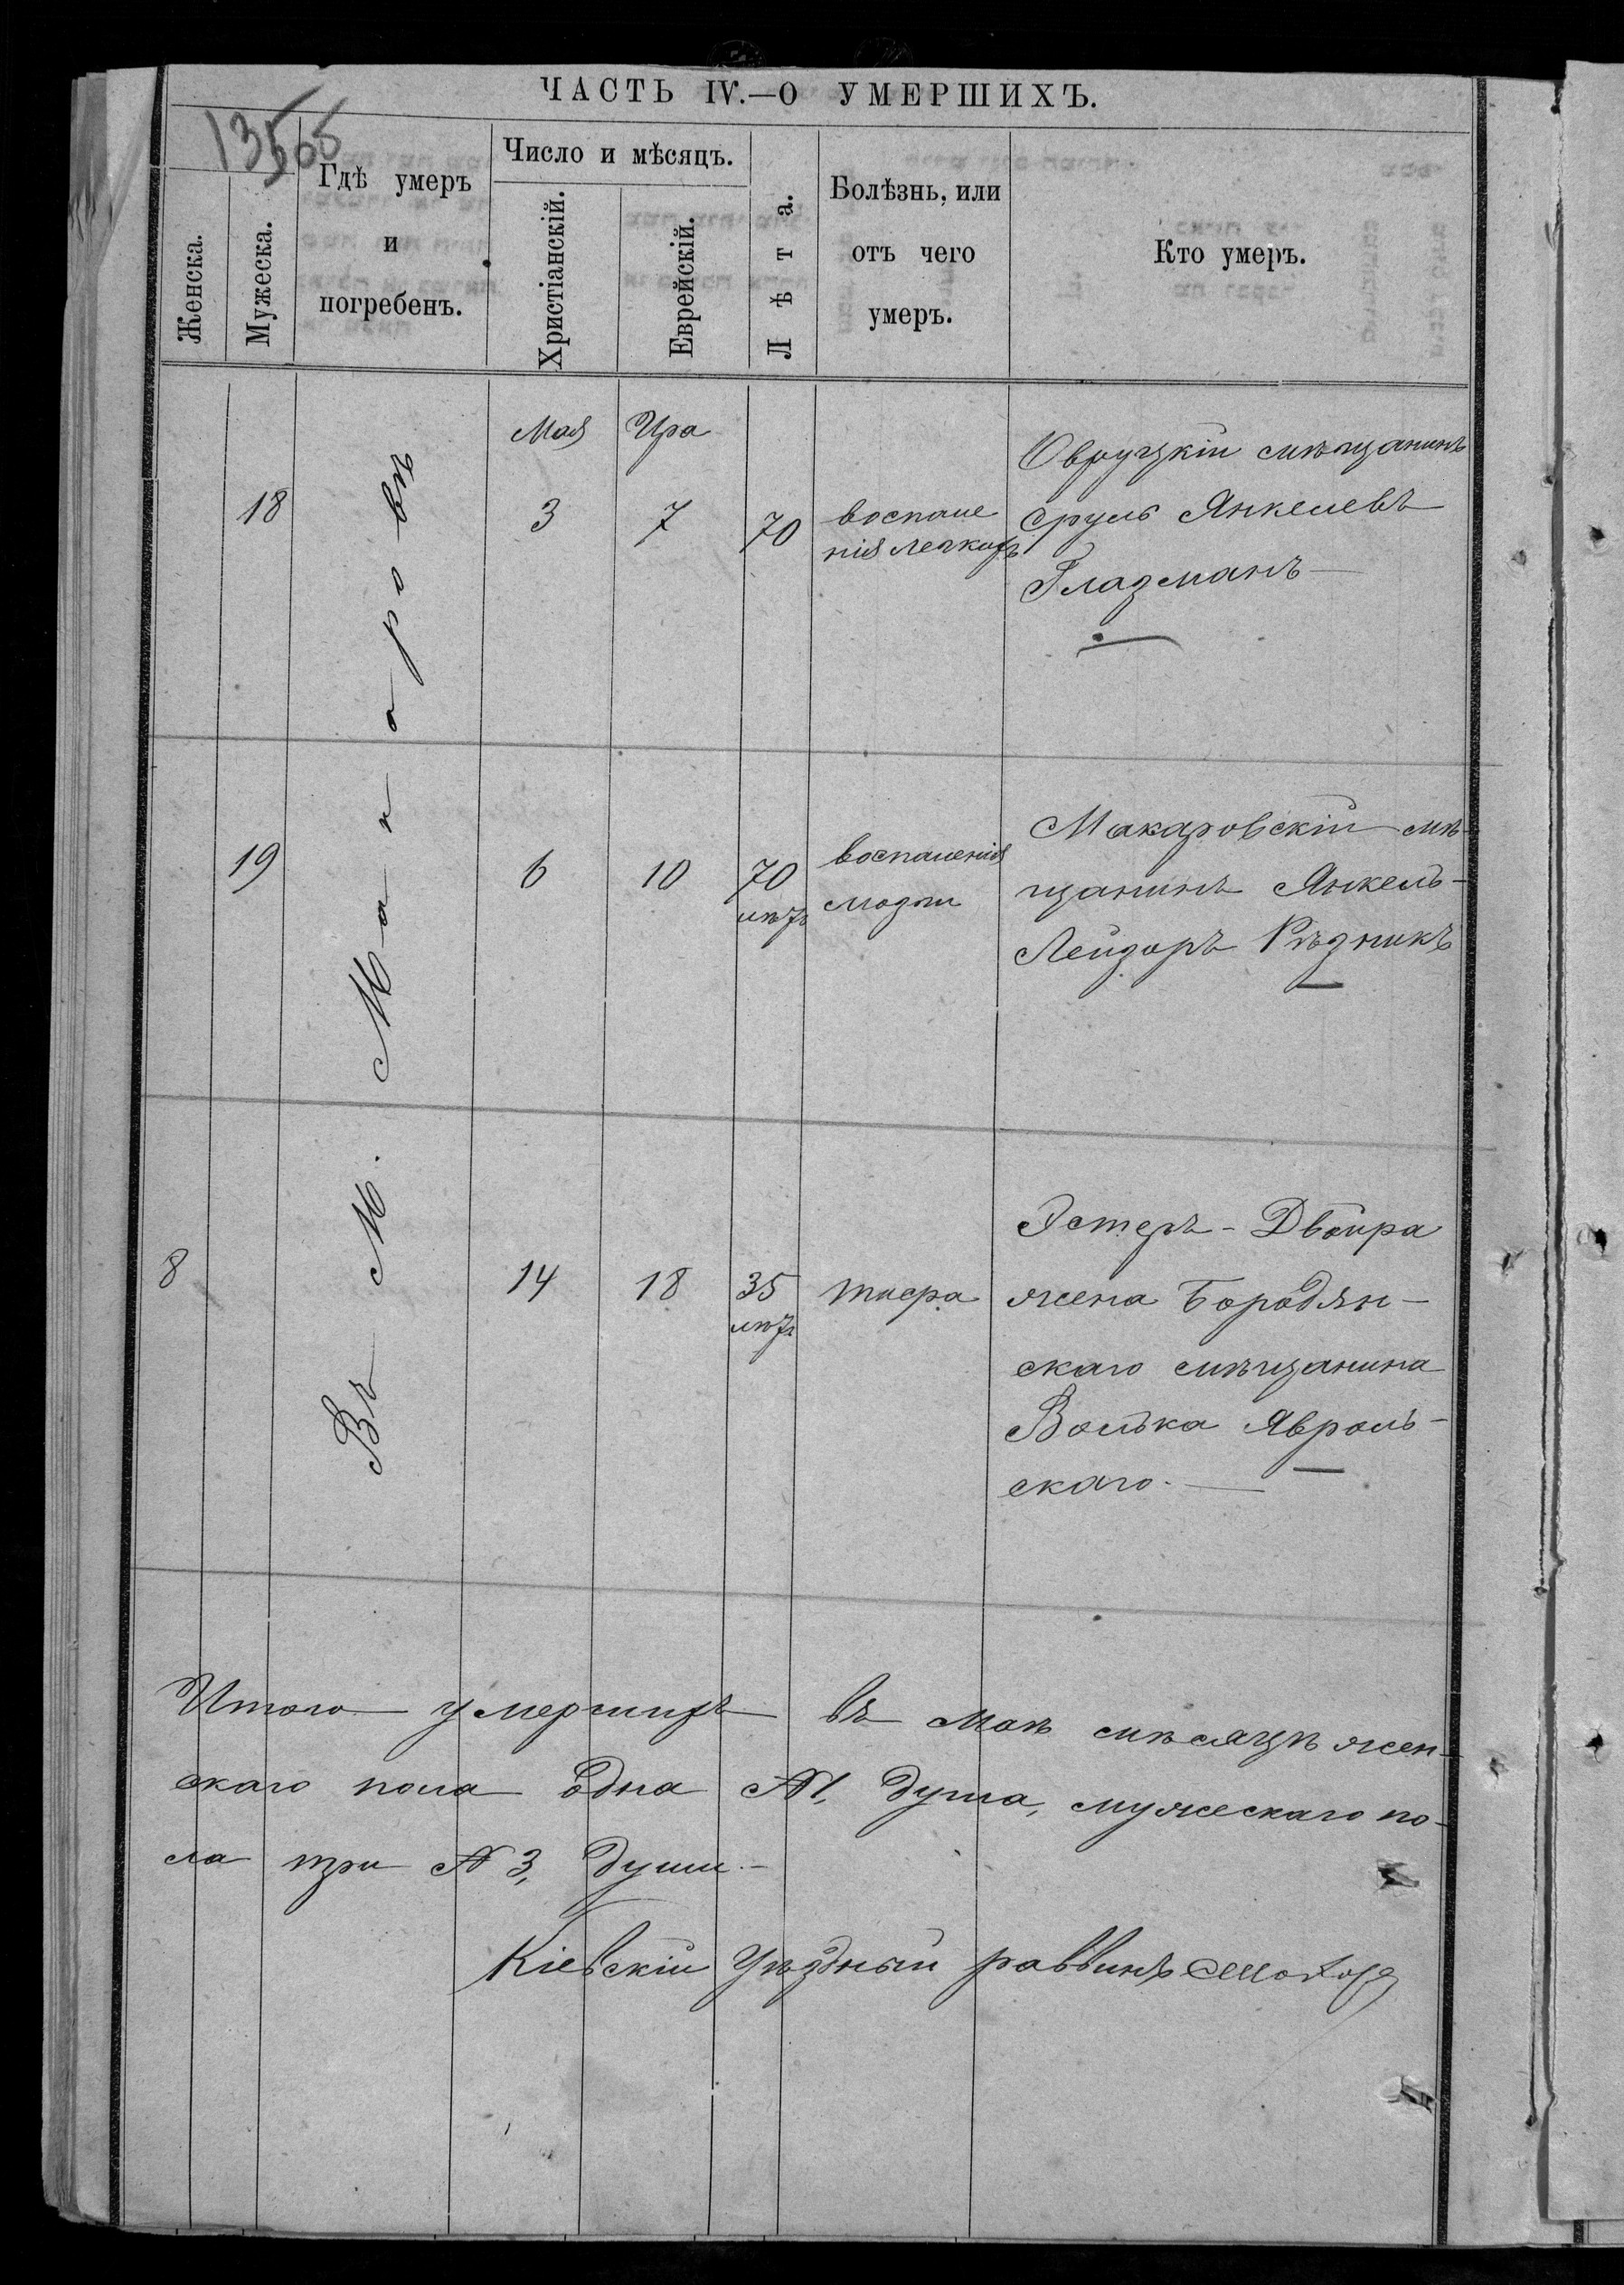 ЧАСТЬ IV.—О УМЕРШИХЪ.
Женска.
Мужеска.
Гдѣ умеръ
и
погребенъ.
Число и мѣсяцъ.
Христіанскій.
Еврейскій.
Лѣта.
Болѣзнь, или
отъ чего
умеръ.
Кто умеръ.
Въ М. Макаровѣ
Мая Ира
18 3 7 70
воспале
нія легкихъ
Овруцкій мѣщанинъ
Сруль Янкелевъ
Глазманъ —
19 6 10 70
лѣтъ
воспаленія
мозги
Макаровскій мѣ-
щанинъ Янкель-
Лейзоръ Рѣзникъ
8 14 18 35
лѣтъ
тифа
Эстеръ - Двойра
жена Бородян-
скаго мѣщанина
Волька Явроль-
скаго. —
Итого умершихъ въ Маѣ мѣсяцѣ жен-
скаго пола одна № 1, душа, мужескаго по-
ла три № 3, души. —
Кіевскій Уѣздный раввинъ